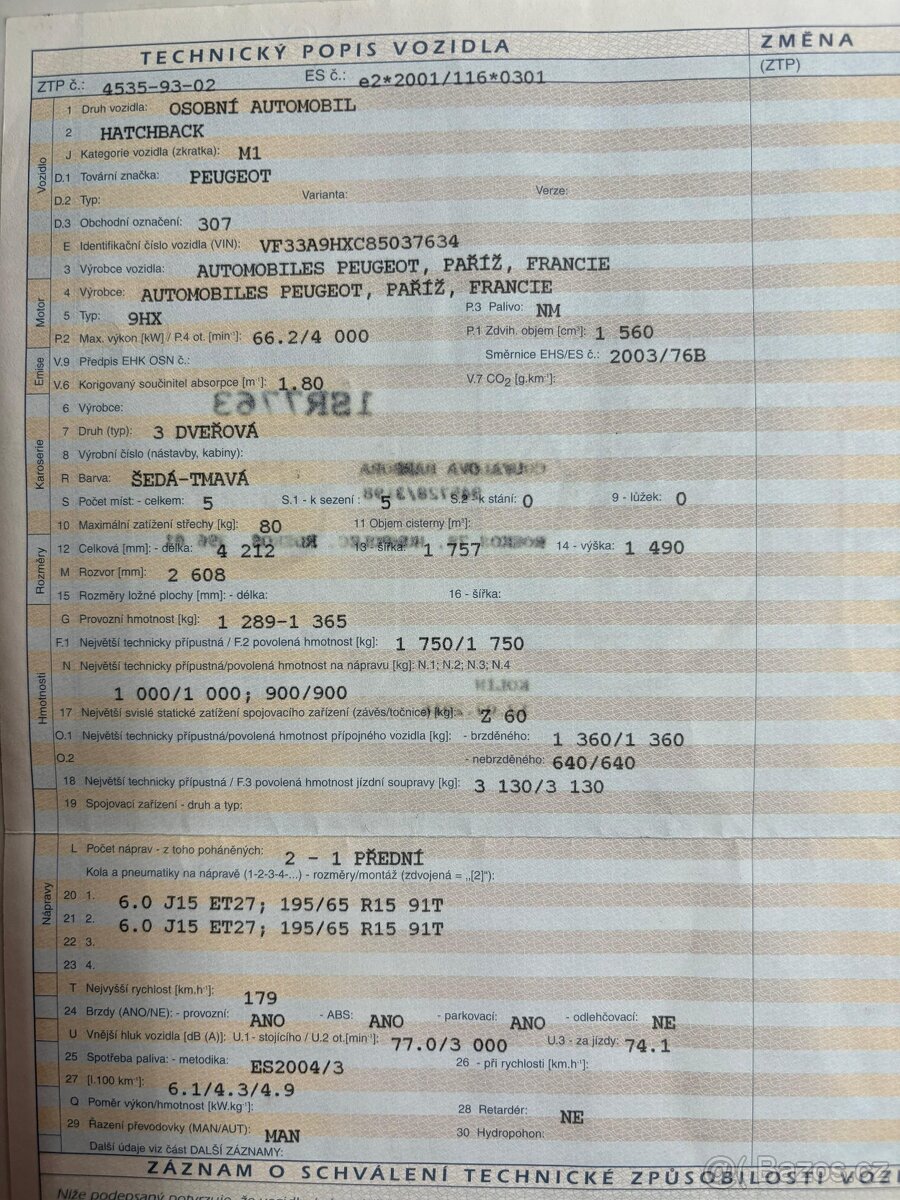 TECHNICKÝ POPIS VOZIDLA ZMĚNA
ZTP č.: 4535-93-02 ES č.: e2*2001/116*0301 (ZTP)
1 Druh vozidla: OSOBNÍ AUTOMOBIL
2 HATCHBACK
J Kategorie vozidla (zkratka): M1
Vozidlo
D.1 Tovární značka: PEUGEOT
D.2 Typ: Varianta: Verze:
D.3 Obchodní označení: 307
E Identifikační číslo vozidla (VIN): VF33A9HXC85037634
3 Výrobce vozidla: AUTOMOBILES PEUGEOT, PAŘÍŽ, FRANCIE
Motor
4 Výrobce: AUTOMOBILES PEUGEOT, PAŘÍŽ, FRANCIE
5 Typ: 9HX P.3 Palivo: NM
P.2 Max. výkon [kW] / P.4 ot. [min⁻¹]: 66.2/4 000 P.1 Zdvih. objem [cm³]: 1 560
Emise
V.9 Předpis EHK OSN č.: Směrnice EHS/ES č.: 2003/76B
V.6 Korigovaný součinitel absorpce [m⁻¹]: 1.80 V.7 CO₂ [g.km⁻¹]:
6 Výrobce: 1SR7763
Karoserie
7 Druh (typ): 3 DVEŘOVÁ
8 Výrobní číslo (nástavby, kabiny):
R Barva: ŠEDÁ-TMAVÁ
S Počet míst: - celkem: 5 S.1 - k sezení: 5 S.2 - k stání: 0 9 - lůžek: 0
10 Maximální zatížení střechy [kg]: 80 11 Objem cisterny [m³]:
Rozměry
12 Celková [mm]: - délka: 4 212 13 - šířka: 1 757 14 - výška: 1 490
M Rozvor [mm]: 2 608
15 Rozměry ložné plochy [mm]: - délka: 16 - šířka:
Hmotnosti
G Provozní hmotnost [kg]: 1 289-1 365
F.1 Největší technicky přípustná / F.2 povolená hmotnost [kg]: 1 750/1 750
N Největší technicky přípustná/povolená hmotnost na nápravu [kg]: N.1; N.2; N.3; N.4
1 000/1 000; 900/900
KOLÍN
17 Největší svislé statické zatížení spojovacího zařízení (závěs/točnice) [kg]: Z 60
O.1 Největší technicky přípustná/povolená hmotnost přípojného vozidla [kg]: - brzděného: 1 360/1 360
O.2 - nebrzděného: 640/640
18 Největší technicky přípustná / F.3 povolená hmotnost jízdní soupravy [kg]: 3 130/3 130
19 Spojovací zařízení - druh a typ:
Nápravy
L Počet náprav - z toho poháněných: 2 - 1 PŘEDNÍ
Kola a pneumatiky na nápravě (1-2-3-4-...) - rozměry/montáž (zdvojená = „[2]"):
20 1. 6.0 J15 ET27; 195/65 R15 91T
21 2. 6.0 J15 ET27; 195/65 R15 91T
22 3.
23 4.
T Nejvyšší rychlost [km.h⁻¹]: 179
24 Brzdy (ANO/NE): - provozní: ANO - ABS: ANO - parkovací: ANO - odlehčovací: NE
U Vnější hluk vozidla [dB (A)]: U.1 - stojícího / U.2 ot.[min⁻¹]: 77.0/3 000 U.3 - za jízdy: 74.1
25 Spotřeba paliva: - metodika: ES2004/3 26 - při rychlosti [km.h⁻¹]:
27 [l.100 km⁻¹]: 6.1/4.3/4.9
Q Poměr výkon/hmotnost [kW.kg⁻¹]: 28 Retardér: NE
29 Řazení převodovky (MAN/AUT): MAN 30 Hydropohon:
Další údaje viz část DALŠÍ ZÁZNAMY:
ZÁZNAM O SCHVÁLENÍ TECHNICKÉ ZPŮSOBILOSTI VOZI
Bazos.cz